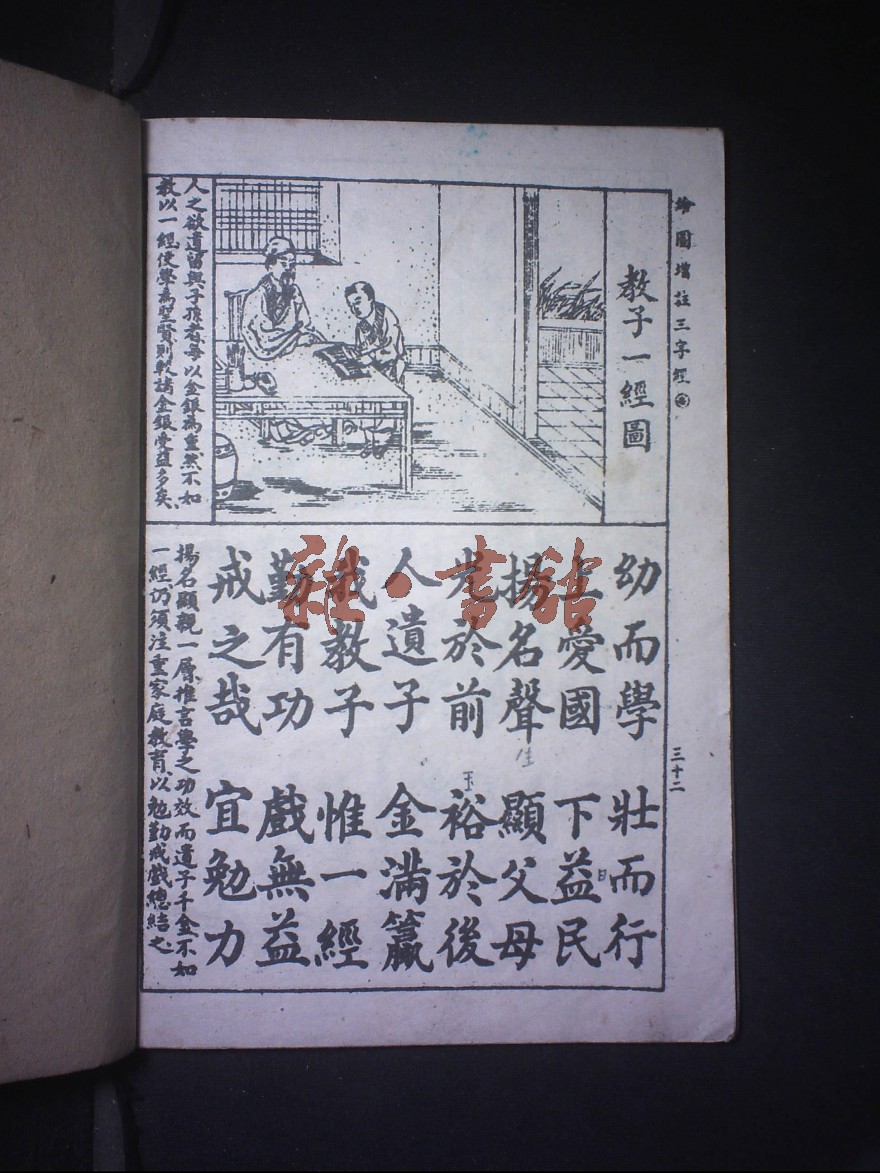 繪圖增註三字經
三十二
教子一經圖
人之欲遺留與子孫者毋以金銀為重然不如
教以一經使學為聖賢則較諸金銀受益多矣、
幼而學 壯而行
上愛國 下益民
揚名聲 顯父母
光於前 裕於後
人遺子 金滿籯
我教子 惟一經
勤有功 戲無益
戒之哉 宜勉力
揚名顯親一層、推言學之功效而遺子千金不如
一經、仍須注重家庭教育、以勉勤戒戲總結之、
生
玉
日
雜·書館